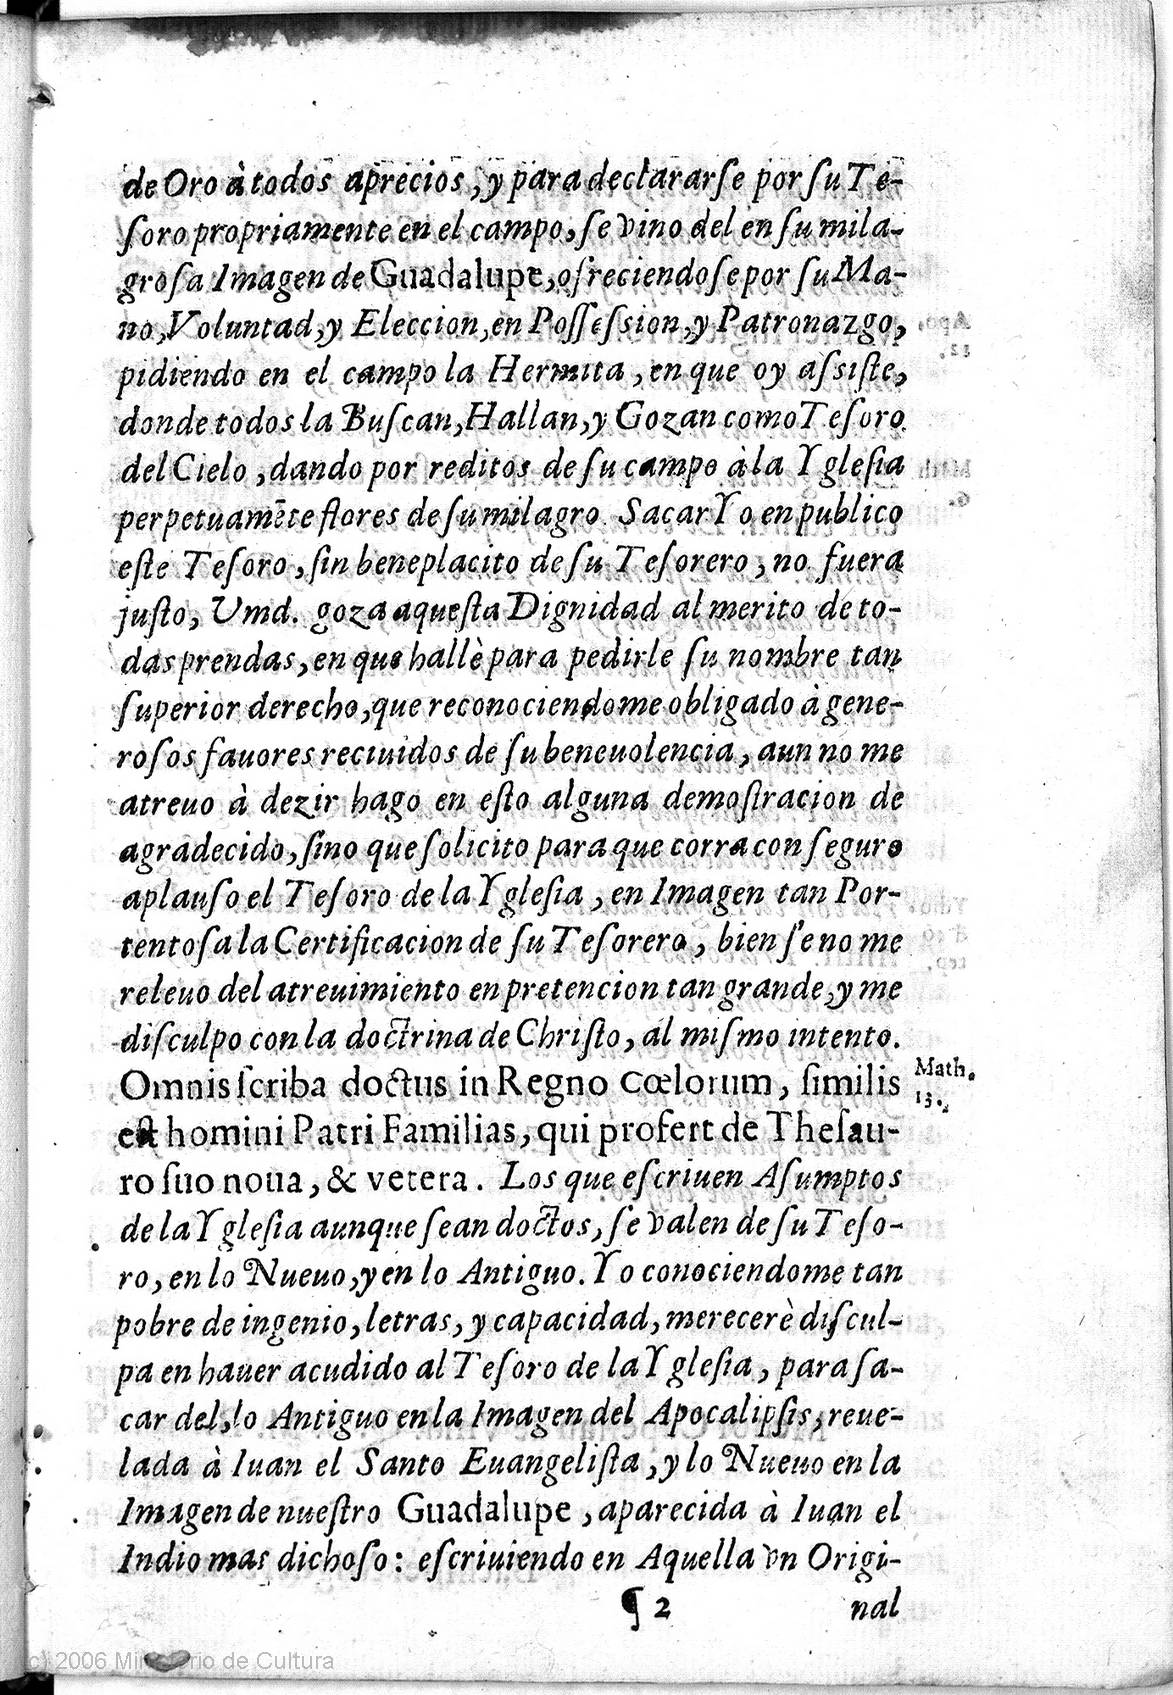 de Oro à todos aprecios, y para declararſe por ſu Te-
ſoro propriamente en el campo, ſe vino del en ſu mila-
groſa Imagen de Guadalupe, ofreciendoſe por ſu Ma-
no, Voluntad, y Eleccion, en Poſſeſsion, y Patronazgo,
pidiendo en el campo la Hermita, en que oy aſsiſte,
donde todos la Buſcan, Hallan, y Gozan como Teſoro
del Cielo, dando por reditos de ſu campo à la Ygleſia
perpetuamẽte flores de ſu milagro. Sacar Yo en publico
eſte Teſoro, ſin beneplacito de ſu Teſorero, no fuera
juſto, Vmd. goza aqueſta Dignidad al merito de to-
das prendas, en que hallè para pedirle ſu nombre tan
ſuperior derecho, que reconociendome obligado à gene-
roſos fauores reciuidos de ſu beneuolencia, aun no me
atreuo à dezir hago en eſto alguna demoſtracion de
agradecido, ſino que ſolicito para que corra con ſeguro
aplauſo el Teſoro de la Ygleſia, en Imagen tan Por-
tentoſa la Certificacion de ſu Teſorero, bien ſe no me
releuo del atreuimiento en pretencion tan grande, y me
diſculpo con la doctrina de Chriſto, al miſmo intento.
Omnis ſcriba doctus in Regno Cœlorum, ſimilis
eſt homini Patri Familias, qui profert de Theſau-
ro ſuo noua, & vetera. Los que eſcriuen Aſumptos
de la Ygleſia aunque ſean doctos, ſe valen de ſu Teſo-
ro, en lo Nueuo, y en lo Antiguo. Yo conociendome tan
pobre de ingenio, letras, y capacidad, merecerè diſcul-
pa en hauer acudido al Teſoro de la Ygleſia, para ſa-
car del, lo Antiguo en la Imagen del Apocalipſis, reue-
lada à Iuan el Santo Euangeliſta, y lo Nueuo en la
Imagen de nueſtro Guadalupe, aparecida à Iuan el
Indio mas dichoſo: eſcriuiendo en Aquella vn Origi-
¶ 2 nal
Math.
13.
(c) 2006 Ministerio de Cultura